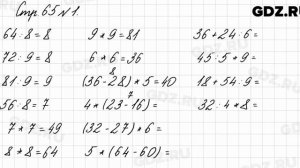 GDZ.RU
Стр. 65 № 1.
64 : 8 = 8
72 : 9 = 8
81 : 9 = 9
56 : 8 = 7
7 * 7 = 49
8 * 8 = 64
9 * 9 = 81
6 * 6 = 36
8
(36-28) * 5 = 40
7
4 * (23-16) =
(32-27) * 6 =
5 * (64-60) =
36 + 24 : 6 =
45 : 5 + 9 =
18 + 54 : 9 =
32 : 4 * 8 =
GDZ.RU